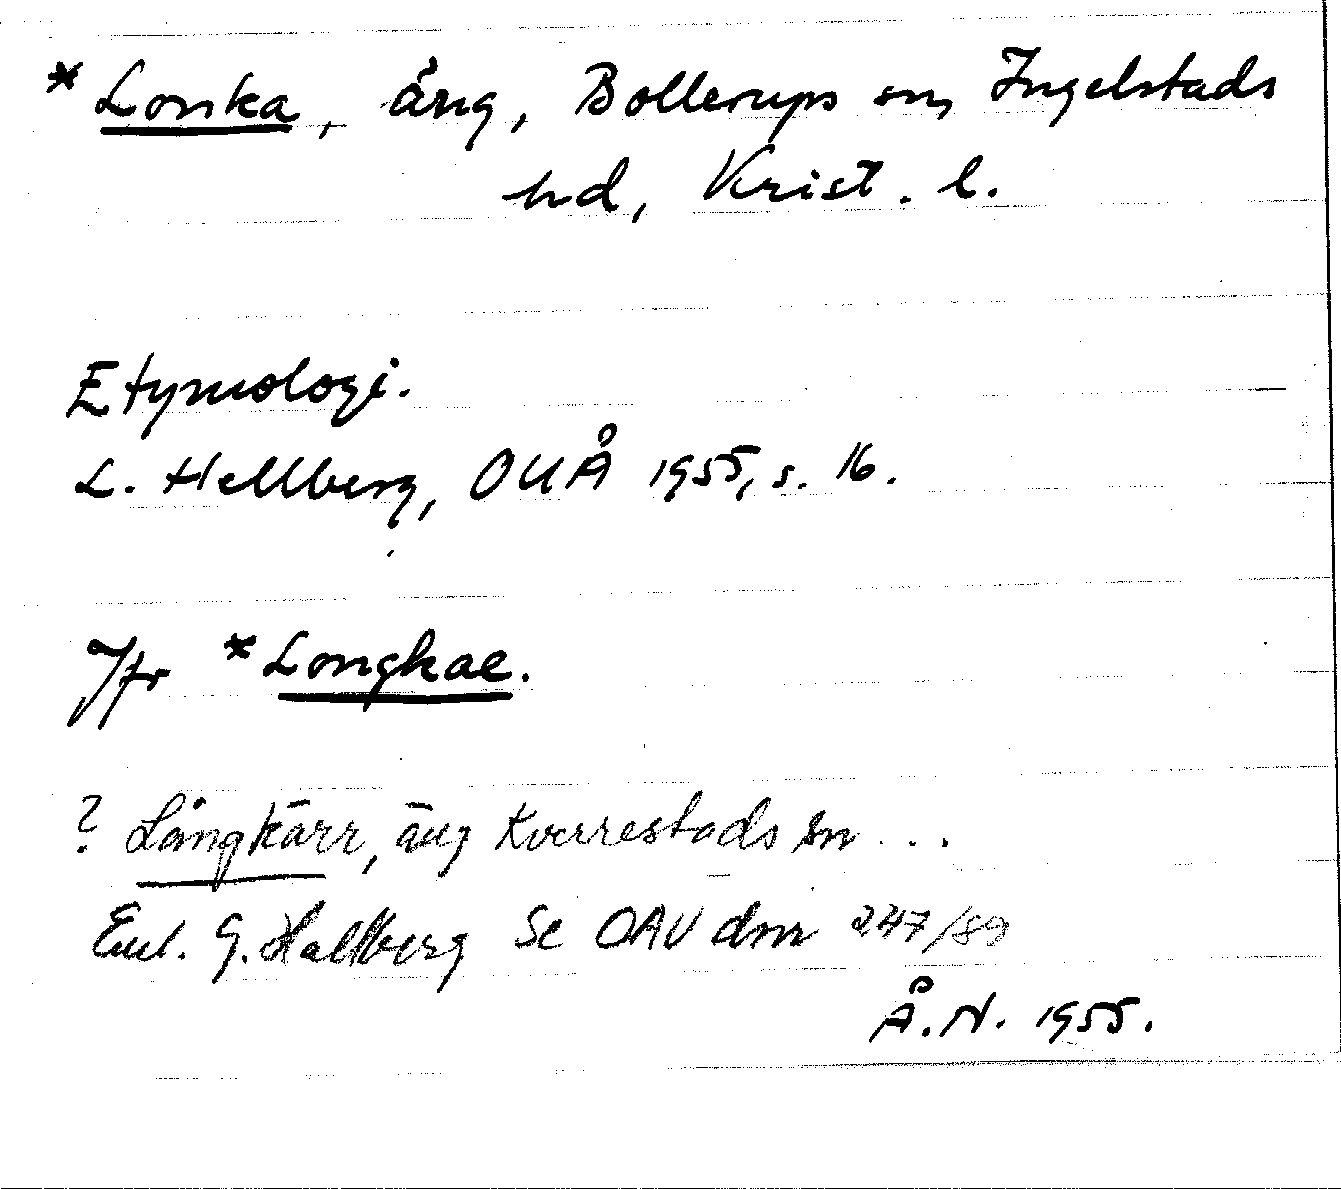 *Lonka, äng, Bollerups sn, Ingelstads
hd, Krist. l.
Etymologi.
L. Hellberg, OUÅ 1955, s. 16.
Jfr *Longkae.
? Långkärr, äng Kverrestads sn ...
Enl. G. Hallberg Se OAU dnr 247/89
Å.N. 1955.